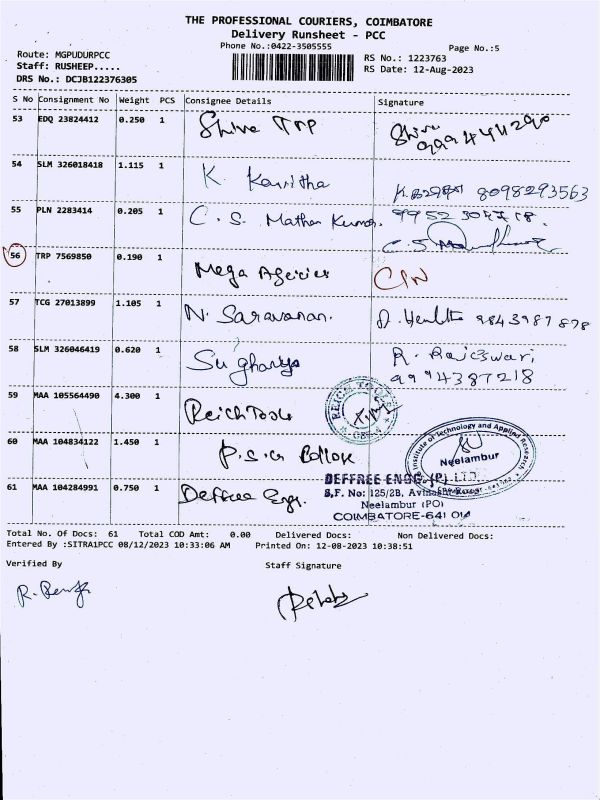 THE PROFESSIONAL COURIERS, COIMBATORE
Delivery Runsheet - PCC
Phone No.:0422-3505555
Page No.:5
Route: MGPUDURPCC
Staff: RUSHEEP.....
DRS No.: DCJB122376305
RS No.: 1223763
RS Date: 12-Aug-2023
S No Consignment No Weight PCS Consignee Details Signature
53 EDQ 23824412 0.250 1 Shiva Trp
54 SLM 326018418 1.115 1 K Kavitha 8098293563
55 PLN 2283414 0.205 1 C. S. Mathan Kumar.
56 TRP 7569850 0.190 1 Mega Agecies
57 TCG 27013899 1.105 1 N. Saravanan. 9843987878
58 SLM 326046419 0.620 1 R. Rajeswari
9994387218
59 MAA 105564490 4.300 1 Reich Tools
60 MAA 104834122 1.450 1 P.S.G
Institute of Technology and Applied Research
Neelambur
61 MAA 104284991 0.750 1 Deffree Engg.
DEFFREE ENGG (P) LTD.
S.F. No: 125/2B,
Neelambur (PO)
COIMBATORE-641 014
Total No. Of Docs: 61 Total COD Amt: 0.00 Delivered Docs: Non Delivered Docs:
Entered By :SITRA1PCC 08/12/2023 10:33:06 AM Printed On: 12-08-2023 10:38:51
Verified By Staff Signature